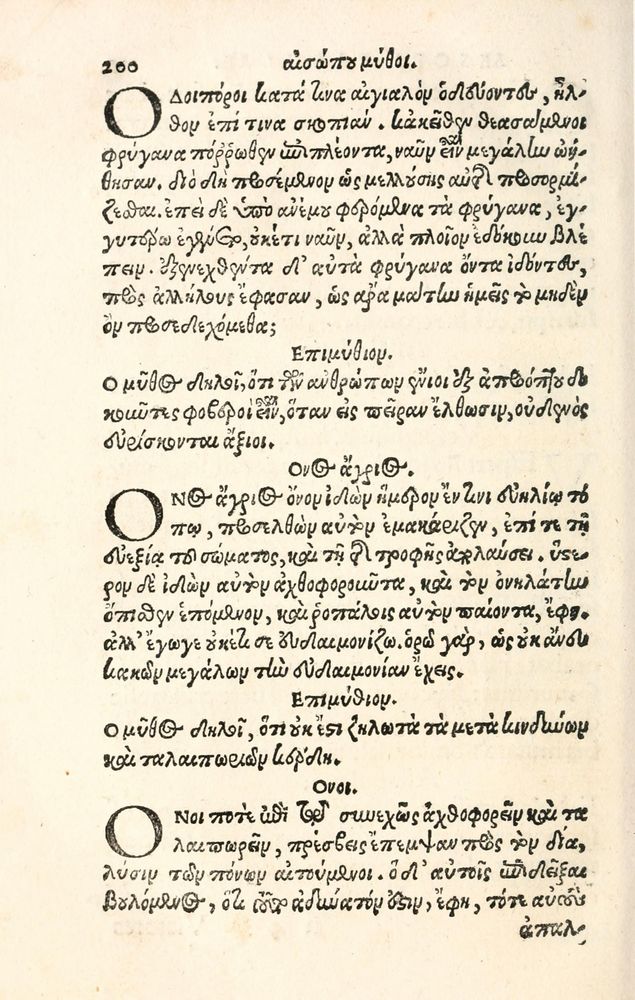 200 αἰσώπου μῦθοι.
Ὁδοιπόροι κατά τινα αἰγιαλὸν ὁδεύοντες, ἦλ-
θον ἐπί τινα σκοπιάν. κἀκεῖθεν θεασάμενοι
φρύγανα πόῤῥωθεν ἐπιπλέοντα, ναῦν εἶναι μεγάλην ᾠή-
θησαν. διὸ δὴ προσέμενον ὡς μελλούσης αὐτῆς προσορμί-
ζεσθαι. ἐπεὶ δὲ ὑπὸ ἀνέμου φερόμενα τὰ φρύγανα, ἐγ-
γυτέρω ἐγένετο, οὐκέτι ναῦν, ἀλλὰ πλοῖον ἐδόκουν βλέ
πειν. ἐξενεχθέντα δ' αὐτὰ φρύγανα ὄντα ἰδόντες,
πρὸς ἀλλήλους ἔφασαν, ὡς ἄρα μάτην ἡμεῖς τὸ μηδὲν
ὂν προσεδεχόμεθα;
Ἐπιμύθιον.
Ὁ μῦθος δηλοῖ, ὅτι τῶν ἀνθρώπων ἔνιοι ἐξ ἀπρόπτου δο
κοῦντες φοβεροὶ εἶναι, ὅταν εἰς πεῖραν ἔλθωσιν, οὐδενὸς
εὑρίσκονται ἄξιοι.
Ὄνος ἄγριος.
Ὄνος ἄγριος ὄνον ἰδὼν ἥμερον ἔν τινι εὐηλίῳ τό
πῳ, προσελθὼν αὐτὸν ἐμακάριζεν, ἐπί τε τῇ
εὐεξίᾳ τοῦ σώματος, καὶ τῇ τῆς τροφῆς ἀπολαύσει. ὕστε-
ρον δὲ ἰδὼν αὐτὸν ἀχθοφοροῦντα, καὶ τὸν ὀνηλάτην
ὄπισθεν ἑπόμενον, καὶ ῥοπάλοις αὐτὸν παίοντα, ἔφη.
ἀλλ' ἔγωγε οὐκέτι σε εὐδαιμονίζω. ὁρῶ γάρ, ὡς οὐκ ἄνευ
κακῶν μεγάλων τὴν εὐδαιμονίαν ἔχεις.
Ἐπιμύθιον.
Ὁ μῦθος δηλοῖ, ὅτι οὐκ ἔστι ζηλωτὰ τὰ μετὰ κινδύνων
καὶ ταλαιπωριῶν κέρδη.
Ὄνοι.
Ὄνοι ποτὲ ἐπὶ τῷ συνεχῶς ἀχθοφορεῖν καὶ τα
λαιπωρεῖν, πρέσβεις ἔπεμψαν πρὸς τὸν δία,
λύσιν τῶν πόνων αἰτούμενοι. ὁ δ' αὐτοῖς ἐπιδεῖξαι
βουλόμενος, ὅτι τοῦτο ἀδύνατόν ἐστιν, ἔφη, τότε αὐτοὺς
ἀπαλ-